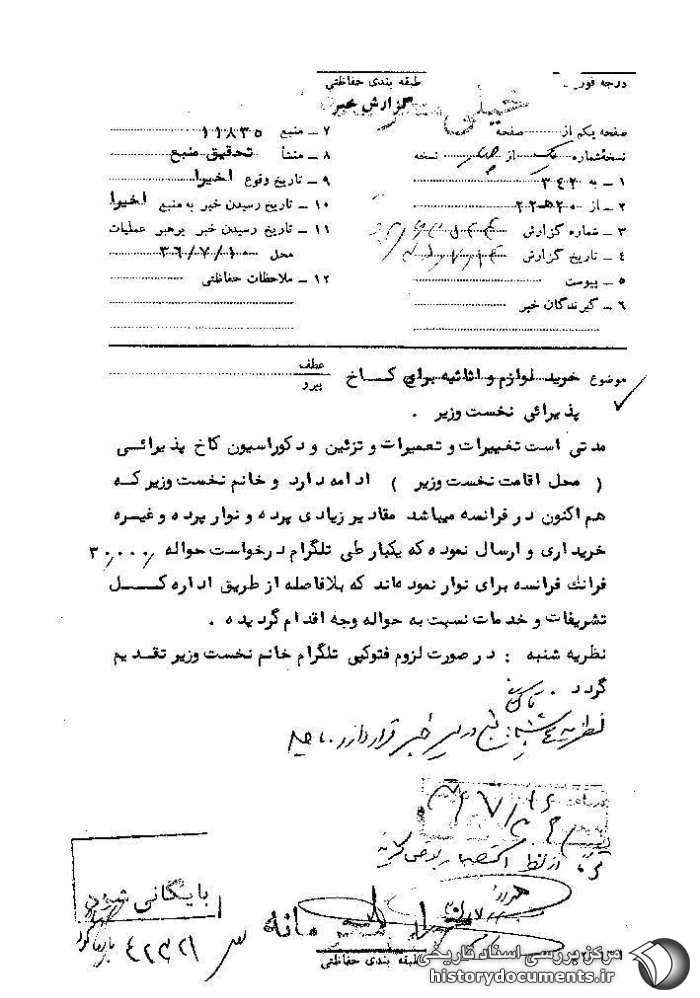 درجه فوریت
طبقه بندی حفاظتی
گزارش خبر
خیلی محرمانه
صفحه یکم از صفحه
نسخهشماره یک از چهار نسخه
۱ ـ به ۳۴۲
۲ ـ از ۲۰ هـ ۲۲
۳ ـ شماره گزارش
۴ ـ تاریخ گزارش
۵ ـ پیوست
۶ ـ گیرندگان خبر
۷ ـ منبع ۱۱۸۳۵
۸ ـ منشأ تحقیق منبع
۹ ـ تاریخ وقوع اخیرا
۱۰ ـ تاریخ رسیدن خبر به منبع اخیرا
۱۱ ـ تاریخ رسیدن خبر برهبر عملیات
محل ۳۶/۷/۱۰
۱۲ ـ ملاحظات حفاظتی
موضوع خرید لوازم و اثاثیه برای کاخ
عطف
پیرو
پذیرائی نخست وزیر .
مدتی است تغییرات و تعمیرات و تزئین و دکوراسیون کاخ پذیرائی
( محل اقامت نخست وزیر ) ادامه دارد و خانم نخست وزیر که
هم اکنون در فرانسه میباشد مقادیر زیادی پرده و نوار پرده و غیره
خریداری و ارسال نموده که یکبار طی تلگرام درخواست حواله ۳۰,۰۰۰
فرانک فرانسه برای نوار نموده‌اند که بلافاصله از طریق اداره کل
تشریفات و خدمات نسبت به حواله وجه اقدام گردیده .
نظریه شنبه : در صورت لزوم فتوکپی تلگرام خانم نخست وزیر تقدیم
گردد .
نظریه ۴ شنبه: منبع در مسیر خبر قرار دارد.
بایگانی شود
۴۲۳۲۱
خیلی محرمانه
طبقه بندی حفاظتی
مرکز بررسی اسناد تاریخی
historydocuments.ir